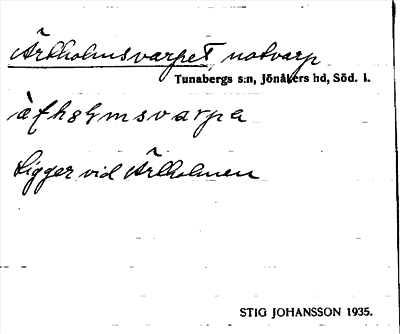 Ärlholmsvarpet, notvarp
Tunabergs s:n, Jönåkers hd, Söd. l.
àfhǫļmsvarpa
Ligger vid Ärlholmen
STIG JOHANSSON 1935.